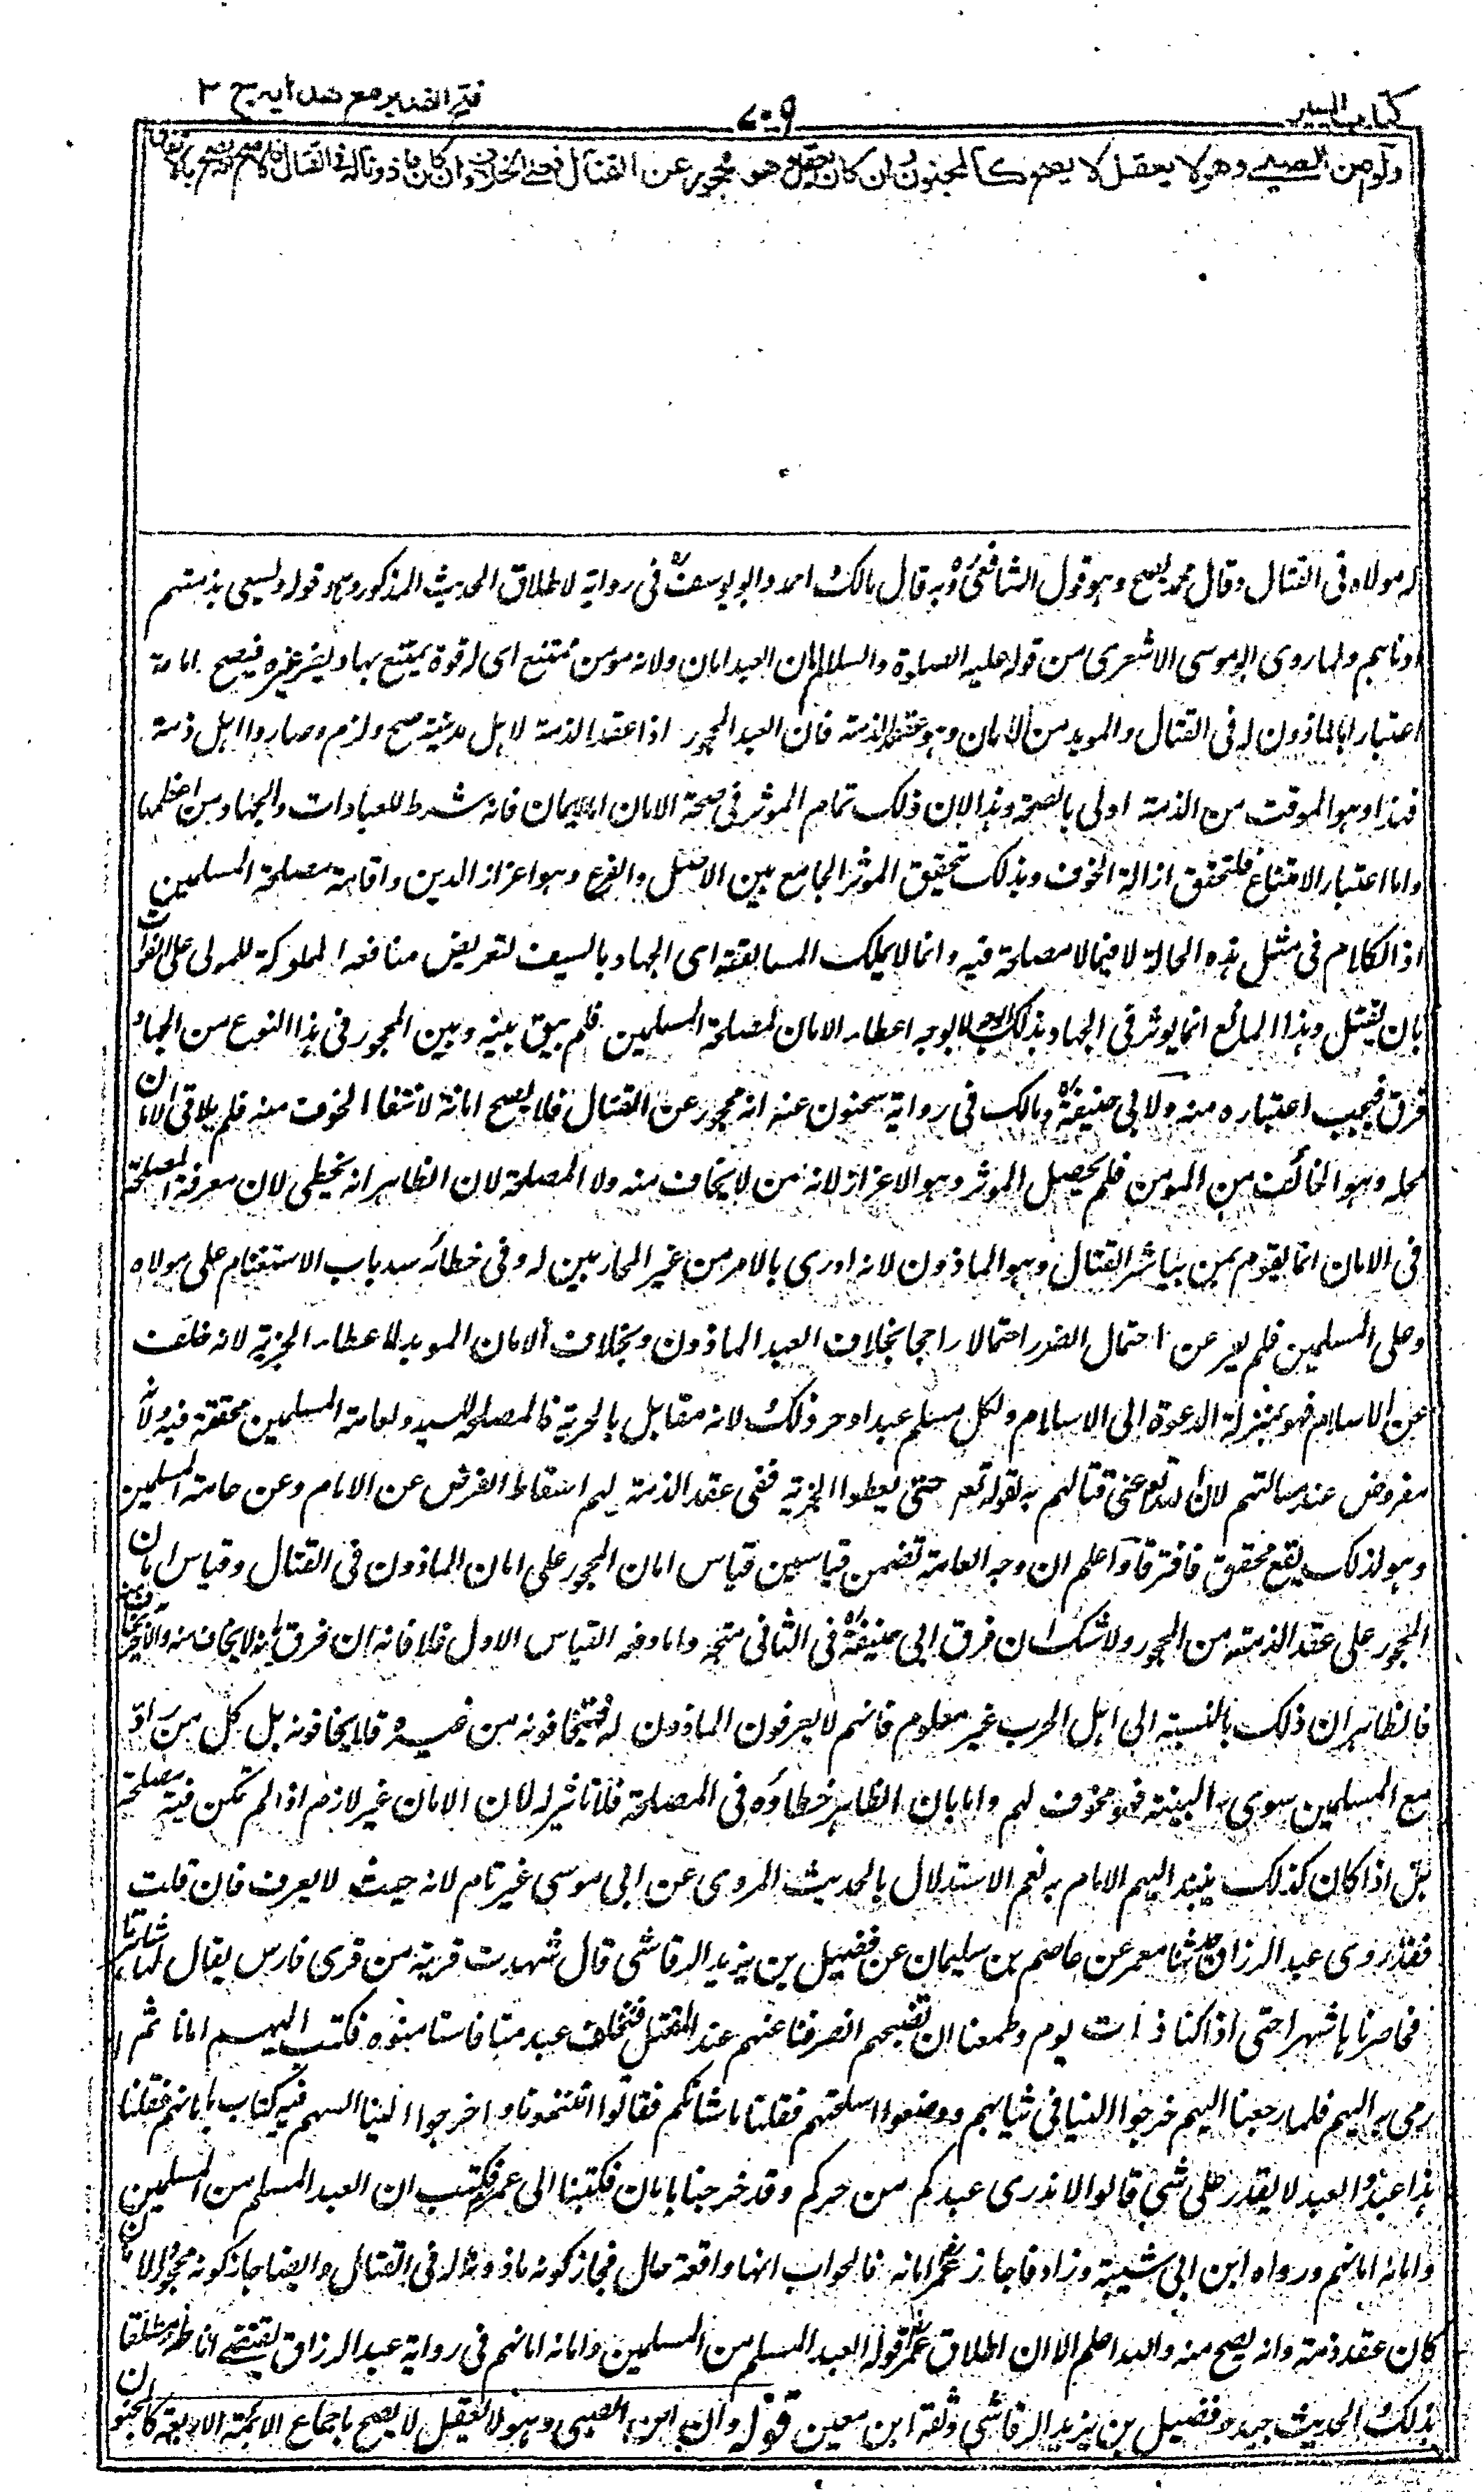 كتاب السير
٧٠٩
فتح القدير مع هدايه ج ٢
ولو امن الصبي وهو لا يعقل لا يصح كالمجنون وان كان يعقل وهو محجور عن القتال فعلى الخلاف وان كان ماذونا له فى القتال فالاصح انه يصح بالاتفاق
له مولاه فى القتال وقال محمد يصح وهو قول الشافعى وبه قال مالك احمد وابو يوسف فى رواية لاطلاق الحديث المذكور وهو قوله ويسعى بذمتهم
ادناهم ولما روى ابو موسى الاشعرى من قوله عليه الصلوة والسلام امان العبد امان ولانه مومن ممتنع اى له قوة يمتنع بها ويضر غيره فيصح امانه
اعتبارا بالماذون له فى القتال والموبد من الامان وهو عقد الذمة فان العبد المحجور اذا عقد الذمة لاهل مدينة صح ولزم وصاروا اهل ذمة
فهذا وهو الموقت من الذمة اولى بالصحة وهذا لان ذلك تمام الموثر فى صحة الامان اما الايمان فانه شرط للعبادات والجهاد من اعظمها
واما اعتبار الامتناع فلتحقق ازالة الخوف وبذلك تحقيق الموثر الجامع بين الاصل والفرع وهو اعزاز الدين واقامة مصلحة المسلمين
اذ الكلام فى مثل هذه الحالة لا فيما لا مصلحة فيه وانما لا يملك المسايفة اى الجهاد بالسيف لتعريض منافعه المملوكة للمولى على الفوات
بان يقتل وهذا المانع انما يوثر فى الجهاد بذلك الوجه لا بوجه اعطاء الامان لمصلحة المسلمين فلم يبق بينه وبين المحجور فى هذا النوع من الجهاد
فرق فيجب اعتباره منه ولابى حنيفة ومالك فى رواية سحنون عنه انه محجور عن القتال فلا يصح امانه لانتفا الخوف منه فلم يلاقى الامان
محله وهو الخائف من المومن فلم يحصل الموثر وهو الاعزاز لانه من لا يخاف منه ولا المصلحة لان الظاهر انه يخطى لان معرفة المصلحة
فى الامان انما يقوم بمن يباشر القتال وهو الماذون لانه ادرى بالامر من غير المحاربين له وفى خطائه سد باب الاستغنام على مولاه
وعلى المسلمين فلم يعر عن احتمال الضرر احتمالا راجحا بخلاف العبد الماذون وبخلاف الامان الموبد لاعطاء الجزية لانه خلف
عن الاسلام فهو بمنزلة الدعوة الى الاسلام ولكل مسلم عبد او حر ذلك لانه مقابل بالجزية فالمصلحة للسيد ولعامة المسلمين محققة فيه ولانه
مفروض عند مسالتهم لان الله تعالى غيى قتالهم به بقوله تع حتى يعطوا الجزية ففى عقد الذمة لهم اسقاط الفرض عن الامام وعن عامة المسلمين
وهو لذلك يقع محقق فافترقا واعلم ان وجه العامة تضمن قياسين قياس امان المحجور على امان الماذون فى القتال وقياس امان
المحجور على عقد الذمة من المحجور ولا شك ان فرق ابى حنيفة فى الثانى متجه واما دفعه القياس الاول فلا فانه ان فرق بانه لا يخاف منه
فالظاهر ان ذلك بالنسبة الى اهل الحرب غير معلوم فانهم لا يعرفون الماذون له فيخافونه من غيره فلا يخافونه بل كل من راوه
مع المسلمين سوى البنية فهو مخوف لهم واما بان الظاهر خطاؤه فى المصلحة فلا تاثير له لان الامان غير لازم اذا لم تكن فيه مصلحة
بل اذا كان كذلك ينبذ اليهم الامام به نعم الاستدلال بالحديث المروى عن ابى موسى غير تام لانه حيث لا يعرف فان قلت
فقد روى عبد الرزاق حدثنا معمر عن عاصم بن سليمان عن فضيل بن يزيد الرقاشى قال شهدت قرية من قرى فارس يقال لها شاهرتا
فحاصرناها شهرا حتى اذا كنا ذات يوم وطمعنا ان نصبحهم انصرفنا عنهم عند المقتل فتخلف عبد منا فاستامنوه فكتب اليهم امانا ثم
رمى به اليهم فلما رجعنا اليهم خرجوا الينا فى ثيابهم ووضعوا اسلحتهم فقلنا ما شانكم فقالوا امنتمونا واخرجوا الينا السهم فيه كتاب بامانهم فقلنا
هذا عبد والعبد لا يقدر على شئ قالوا لا ندرى عبدكم من حركم وقد خرجنا بامان فكتبنا الى عمر فكتب ان العبد المسلم من المسلمين
وامانه امانهم ورواه ابن ابى شيبة وزاد فاجاز عمر امانه فالجواب انها واقعة حال فجاز كونه ماذونا له فى القتال وايضا جاز كونه محجورا الا ان
كان عقد ذمة وانه يصح منه والله اعلم الا ان اطلاق عمر قوله العبد المسلم من المسلمين وامانه امانهم فى رواية عبد الرزاق يقتضى اناطة مطلقا
بذلك الحديث جيد وفضيل بن يزيد الرقاشى وثقه ابن معين قوله وان امن الصبى وهو لا يعقل لا يصح باجماع الائمة الاربعة كالمجنون